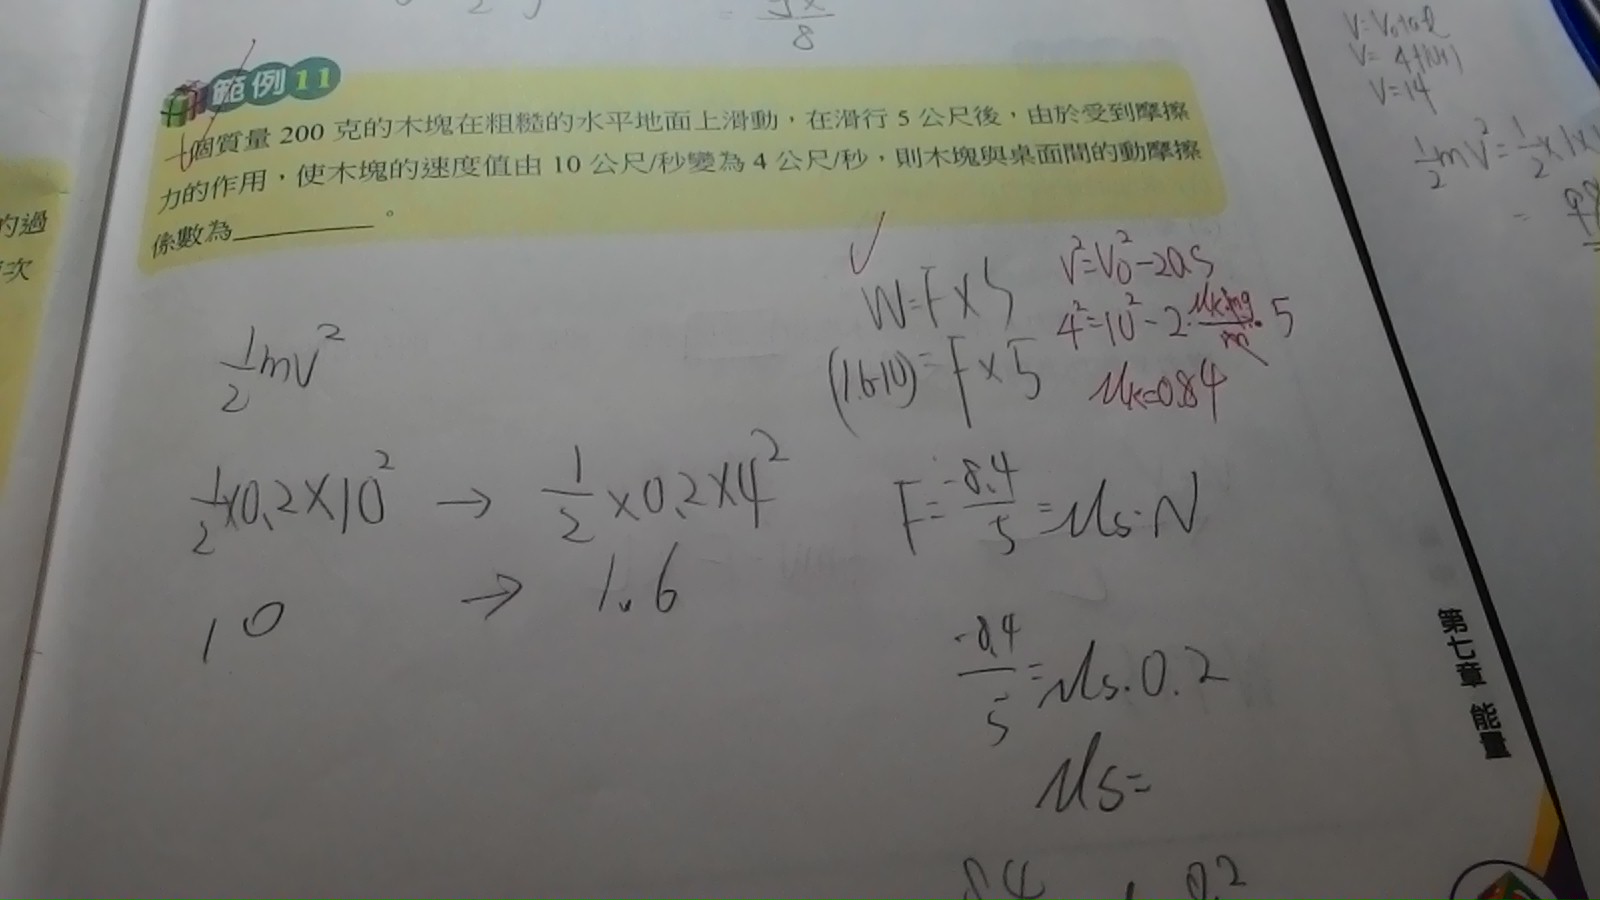 範例11
一個質量 200 克的木塊在粗糙的水平地面上滑動，在滑行 5 公尺後，由於受到摩擦
力的作用，使木塊的速度值由 10 公尺/秒變為 4 公尺/秒，則木塊與桌面間的動摩擦
係數為＿＿＿＿。
½mv²
½×0.2×10² → ½×0.2×4²
10 → 1.6
W=F×S
(1.6-10)=F×5
F=-8.4/5=μs·N
-8.4/5=μs·0.2
μs=
8.4
0.2
V²=V₀²-2aS
4²=10²-2·μk·mg/m·5
μk=0.84
V=V₀+at
V=14
½mV²=½×1×1
=
8
的過
次
第七章 能量